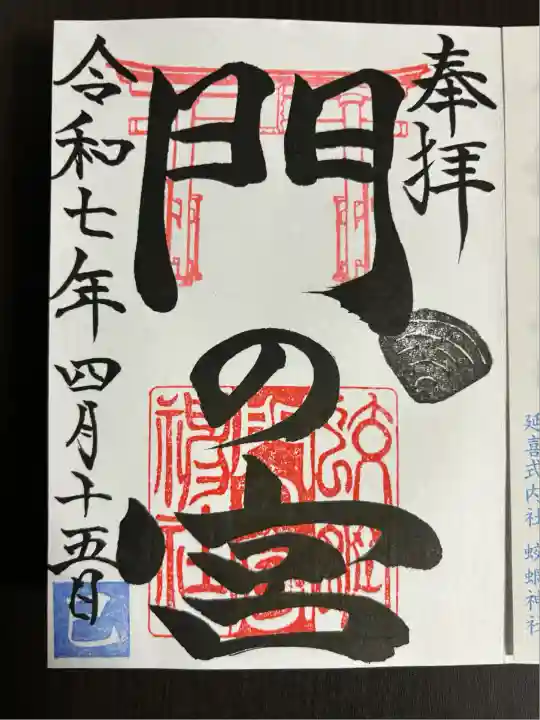 奉拝
門の宮
令和七年四月十五日
巳
延喜式内社 蛟蝄神社